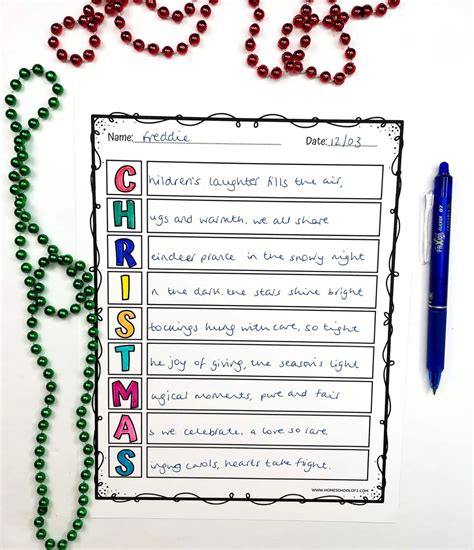 Name: Freddie Date: 12/03
Children's laughter fills the air,
Hugs and warmth, we all share
Reindeer prance in the snowy night
In the dark, the stars shine bright
Stockings hung with care, so tight
The joy of giving, the season's light
Magical moments, pure and fair
As we celebrate, a love so rare
Singing carols, hearts take flight.
WWW.HOMESCHOOLOF1.COM